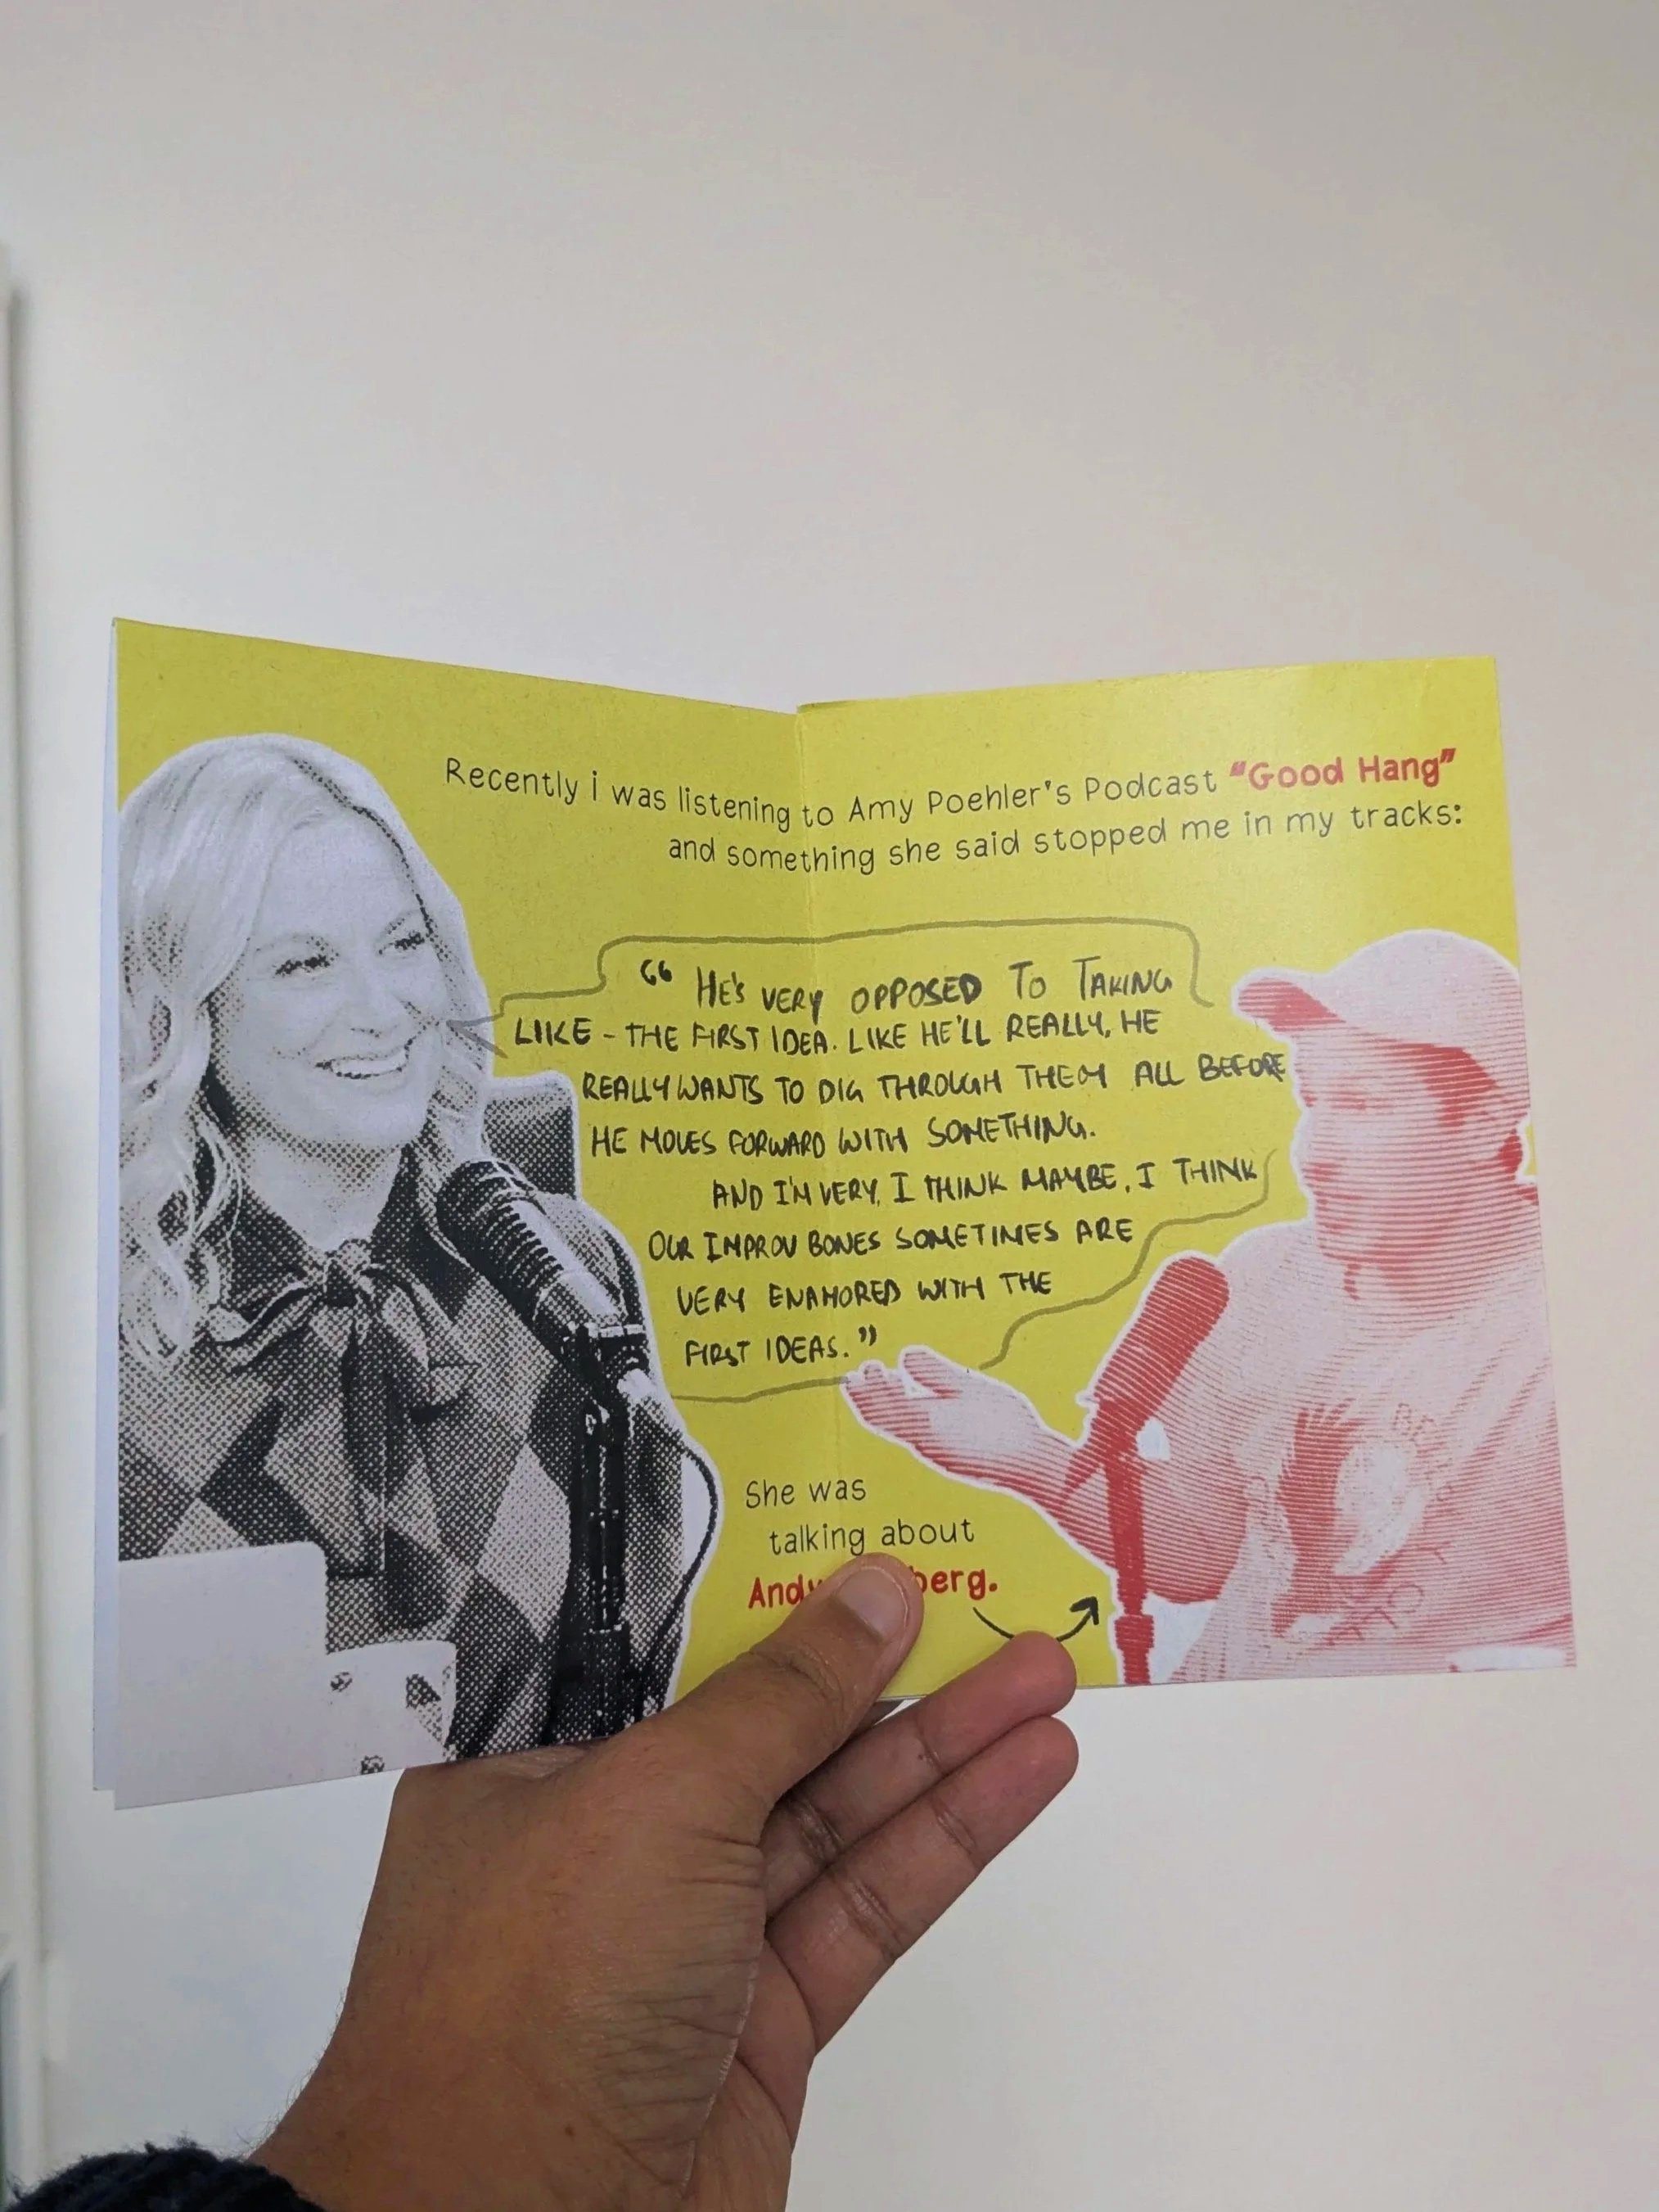 Recently i was listening to Amy Poehler's Podcast "Good Hang"
and something she said stopped me in my tracks:
"HE'S VERY OPPOSED TO TAKING
LIKE - THE FIRST IDEA. LIKE HE'LL REALLY, HE
REALLY WANTS TO DIG THROUGH THEM ALL BEFORE
HE MOVES FORWARD WITH SOMETHING.
AND I'M VERY, I THINK MAYBE, I THINK
OUR IMPROV BONES SOMETIMES ARE
VERY ENAMORED WITH THE
FIRST IDEAS."
She was
talking about
Andy berg.